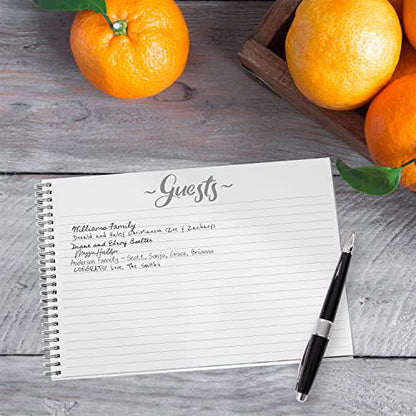 ~Guests~
Williams Family
Donald and Haley Christianson (Zoe & Zachary)
Diane and Elroy Boelter
Maggie
Anderson Family - Scott, Sonja, Grace, Brianna
CONGRATS! Love, The Smiths